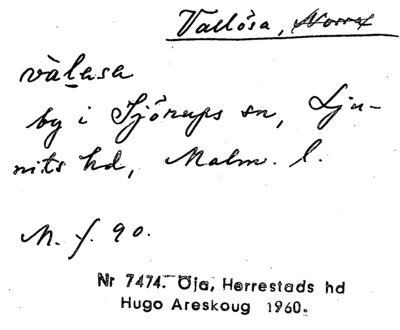 Vallösa, Norra
vàlasa
by i Sjörups sn, Lju-
nits hd, Malm. l.
M. f. 90.
Nr 7474. Öja, Herrestads hd
Hugo Areskoug 1960.